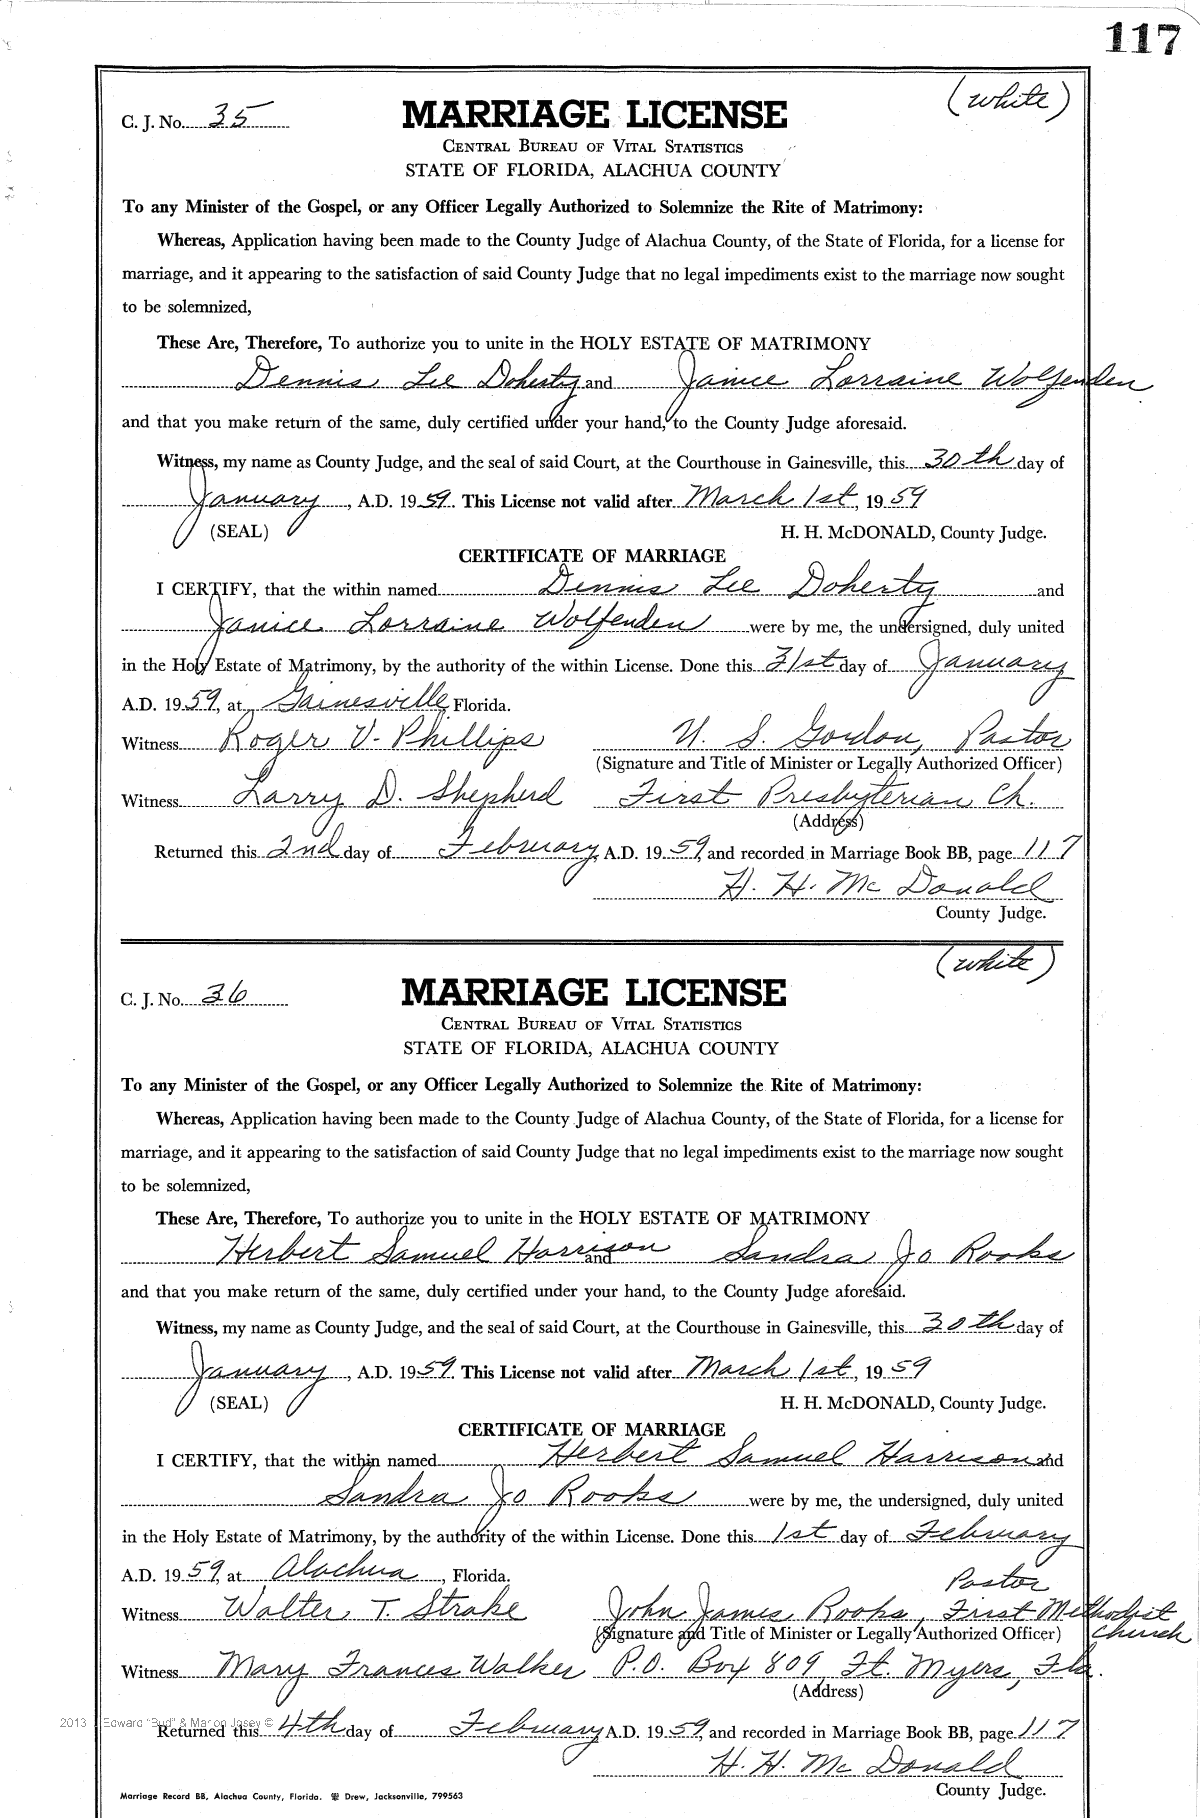 117
(white)
C. J. No. 35
MARRIAGE LICENSE
CENTRAL BUREAU OF VITAL STATISTICS
STATE OF FLORIDA, ALACHUA COUNTY
To any Minister of the Gospel, or any Officer Legally Authorized to Solemnize the Rite of Matrimony:
Whereas, Application having been made to the County Judge of Alachua County, of the State of Florida, for a license for
marriage, and it appearing to the satisfaction of said County Judge that no legal impediments exist to the marriage now sought
to be solemnized,
These Are, Therefore, To authorize you to unite in the HOLY ESTATE OF MATRIMONY
Dennis Lee Doherty and Janice Lorraine Wolfenden
and that you make return of the same, duly certified under your hand, to the County Judge aforesaid.
Witness, my name as County Judge, and the seal of said Court, at the Courthouse in Gainesville, this 30th day of
January, A.D. 1959. This License not valid after March 1st, 1959
(SEAL) H. H. McDONALD, County Judge.
CERTIFICATE OF MARRIAGE
I CERTIFY, that the within named Dennis Lee Doherty and
Janice Lorraine Wolfenden were by me, the undersigned, duly united
in the Holy Estate of Matrimony, by the authority of the within License. Done this 31st day of January
A.D. 1959, at Gainesville, Florida.
Witness Roger V. Phillips U. S. Gordon, Pastor
(Signature and Title of Minister or Legally Authorized Officer)
Witness Larry D. Shepherd First Presbyterian Ch.
(Address)
Returned this 2nd day of February, A.D. 1959, and recorded in Marriage Book BB, page 117
H. H. McDonald
County Judge.
(white)
C. J. No. 36
MARRIAGE LICENSE
CENTRAL BUREAU OF VITAL STATISTICS
STATE OF FLORIDA, ALACHUA COUNTY
To any Minister of the Gospel, or any Officer Legally Authorized to Solemnize the Rite of Matrimony:
Whereas, Application having been made to the County Judge of Alachua County, of the State of Florida, for a license for
marriage, and it appearing to the satisfaction of said County Judge that no legal impediments exist to the marriage now sought
to be solemnized,
These Are, Therefore, To authorize you to unite in the HOLY ESTATE OF MATRIMONY
Herbert Samuel Harrison and Sandra Jo Rooks
and that you make return of the same, duly certified under your hand, to the County Judge aforesaid.
Witness, my name as County Judge, and the seal of said Court, at the Courthouse in Gainesville, this 30th day of
January, A.D. 1959. This License not valid after March 1st, 1959
(SEAL) H. H. McDONALD, County Judge.
CERTIFICATE OF MARRIAGE
I CERTIFY, that the within named Herbert Samuel Harrison and
Sandra Jo Rooks were by me, the undersigned, duly united
in the Holy Estate of Matrimony, by the authority of the within License. Done this 1st day of February
A.D. 1959, at Alachua, Florida.
Pastor
Witness Walter T. Strake John James Rooks, First Methodist
(Signature and Title of Minister or Legally Authorized Officer) Church
Witness Mary Frances Walker P.O. Box 809, Ft. Myers, Fla.
(Address)
2013 Edward "Bud" & Marion Josey ©
Returned this 4th day of February A.D. 1959, and recorded in Marriage Book BB, page 117
H. H. McDonald
County Judge.
Marriage Record BB, Alachua County, Florida. Drew, Jacksonville, 799563